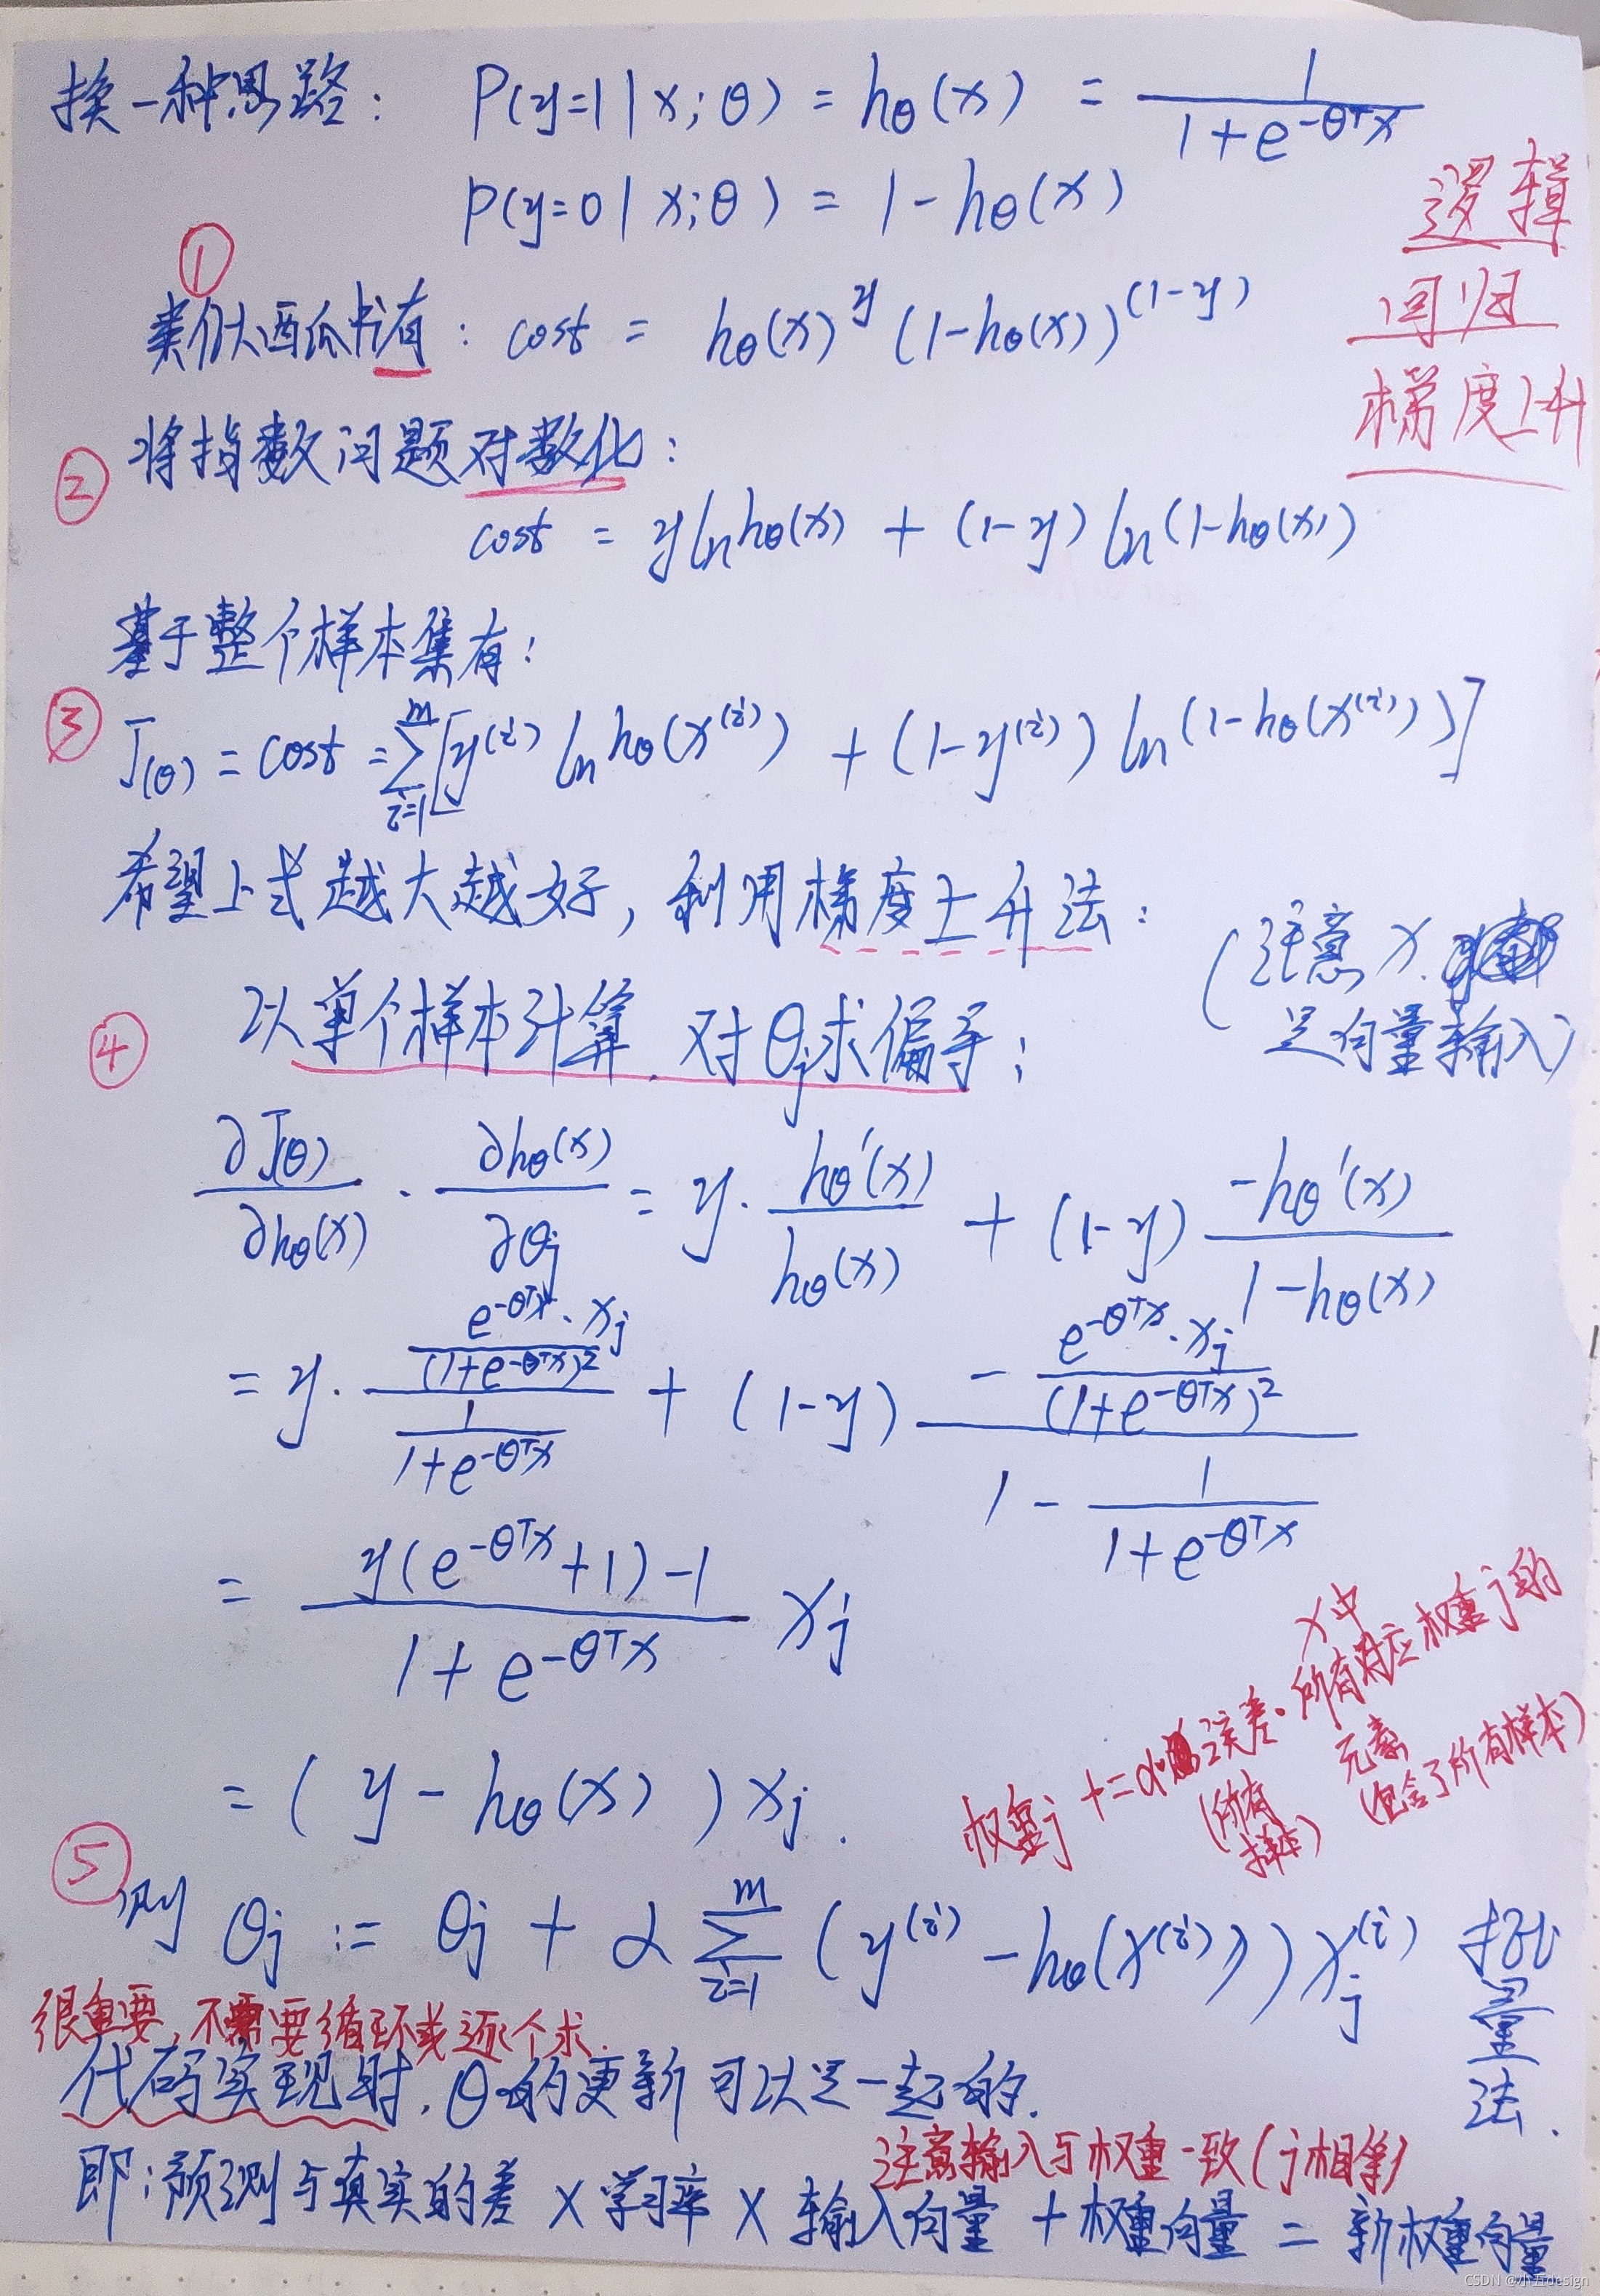 换一种思路: P(y=1|x;θ) = hθ(x) = 1/(1+e^(-θᵀx))
P(y=0|x;θ) = 1-hθ(x)
逻辑
回归
梯度上升
①
类似西瓜书有: cost = hθ(x)^y (1-hθ(x))^(1-y)
② 将指数问题对数化:
cost = y ln hθ(x) + (1-y) ln(1-hθ(x))
基于整个样本集有:
③ J(θ) = cost = ∑_{i=1}^{m} [y^(i) ln hθ(x^(i)) + (1-y^(i)) ln(1-hθ(x^(i)))]
希望上式越大越好, 利用梯度上升法:
(注意 x
是向量输入)
④ 以单个样本计算, 对θj求偏导:
∂J(θ)/∂hθ(x) · ∂hθ(x)/∂θj = y · hθ'(x)/hθ(x) + (1-y) (-hθ'(x))/(1-hθ(x))
= y · (e^(-θᵀx)·xj/(1+e^(-θᵀx))²)/(1/(1+e^(-θᵀx))) + (1-y) (-e^(-θᵀx)·xj/(1+e^(-θᵀx))²)/(1-1/(1+e^(-θᵀx)))
= (y(e^(-θᵀx)+1)-1)/(1+e^(-θᵀx)) xj
= (y-hθ(x))xj.
x中
权重j += α·误差·所有对应权重j的
元素
(所有
样本)
(包含了所有样本)
⑤ 则 θj := θj + α ∑_{i=1}^{m} (y^(i) - hθ(x^(i)))xj^(i)
批
量
法.
很重要, 不需要循环或逐个求.
代码实现时, θ的更新可以是一起的.
注意输入与权重一致(j相等)
即: 预测与真实的差 × 学习率 × 输入向量 + 权重向量 = 新权重向量